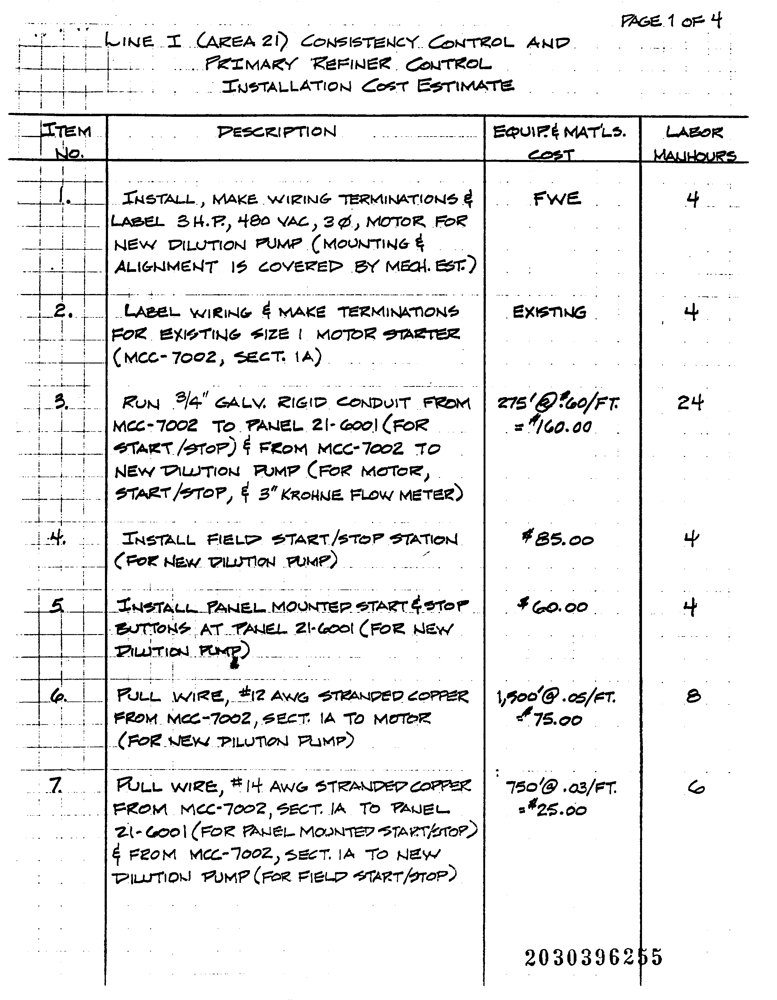 PAGE 1 OF 4
LINE I (AREA 21) CONSISTENCY CONTROL AND
PRIMARY REFINER CONTROL
INSTALLATION COST ESTIMATE
ITEM NO. DESCRIPTION EQUIP. & MAT'LS. COST LABOR MANHOURS
1. INSTALL, MAKE WIRING TERMINATIONS & FWE 4
LABEL 3 H.P., 480 VAC, 3Ø, MOTOR FOR
NEW DILUTION PUMP (MOUNTING &
ALIGNMENT IS COVERED BY MECH. EST.)
2. LABEL WIRING & MAKE TERMINATIONS EXISTING 4
FOR EXISTING SIZE 1 MOTOR STARTER
(MCC-7002, SECT. 1A)
3. RUN 3/4" GALV. RIGID CONDUIT FROM 275' @ $.60/FT. 24
MCC-7002 TO PANEL 21-6001 (FOR = $160.00
START/STOP) & FROM MCC-7002 TO
NEW DILUTION PUMP (FOR MOTOR,
START/STOP, & 3" KROHNE FLOW METER)
4. INSTALL FIELD START/STOP STATION $85.00 4
(FOR NEW DILUTION PUMP)
5. INSTALL PANEL MOUNTED START & STOP $60.00 4
BUTTONS AT PANEL 21-6001 (FOR NEW
DILUTION PUMP)
6. PULL WIRE, #12 AWG STRANDED COPPER 1,500' @ .05/FT. 8
FROM MCC-7002, SECT. 1A TO MOTOR = $75.00
(FOR NEW DILUTION PUMP)
7. PULL WIRE, #14 AWG STRANDED COPPER 750' @ .03/FT. 6
FROM MCC-7002, SECT. 1A TO PANEL = $25.00
21-6001 (FOR PANEL MOUNTED START/STOP)
& FROM MCC-7002, SECT. 1A TO NEW
DILUTION PUMP (FOR FIELD START/STOP)
2030396255